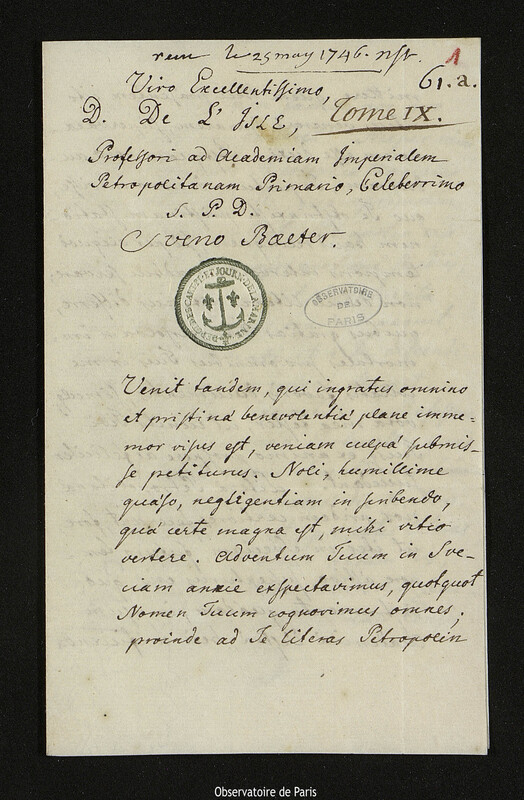 recu le 25 may 1746. nst.
1
61.a.
Viro Excellentissimo,
D. De L'Isle, Tome IX.
Professori ad Academiam Imperialem
Petropolitanam Primario, Celeberrimo
S. P. D.
Sveno Baeter.
DEPOT DES CARTES ET JOURN. DE LA MARINE
OBSERVATOIRE
DE
PARIS
Venit tandem, qui ingratus omnino
et pristinâ benevolentiâ plane imme-
mor visus est, veniam culpâ submis-
se petiturus. Noli, humillime
quæso, negligentiam in scribendo,
quâ certe magna est, mihi vitio
vertere. Adventum Tuum in Sve-
ciam anxie exspectavimus, quotquot
Nomen Tuum cognovimus omnes;
proinde ad Te literas Petropolin
Observatoire de Paris